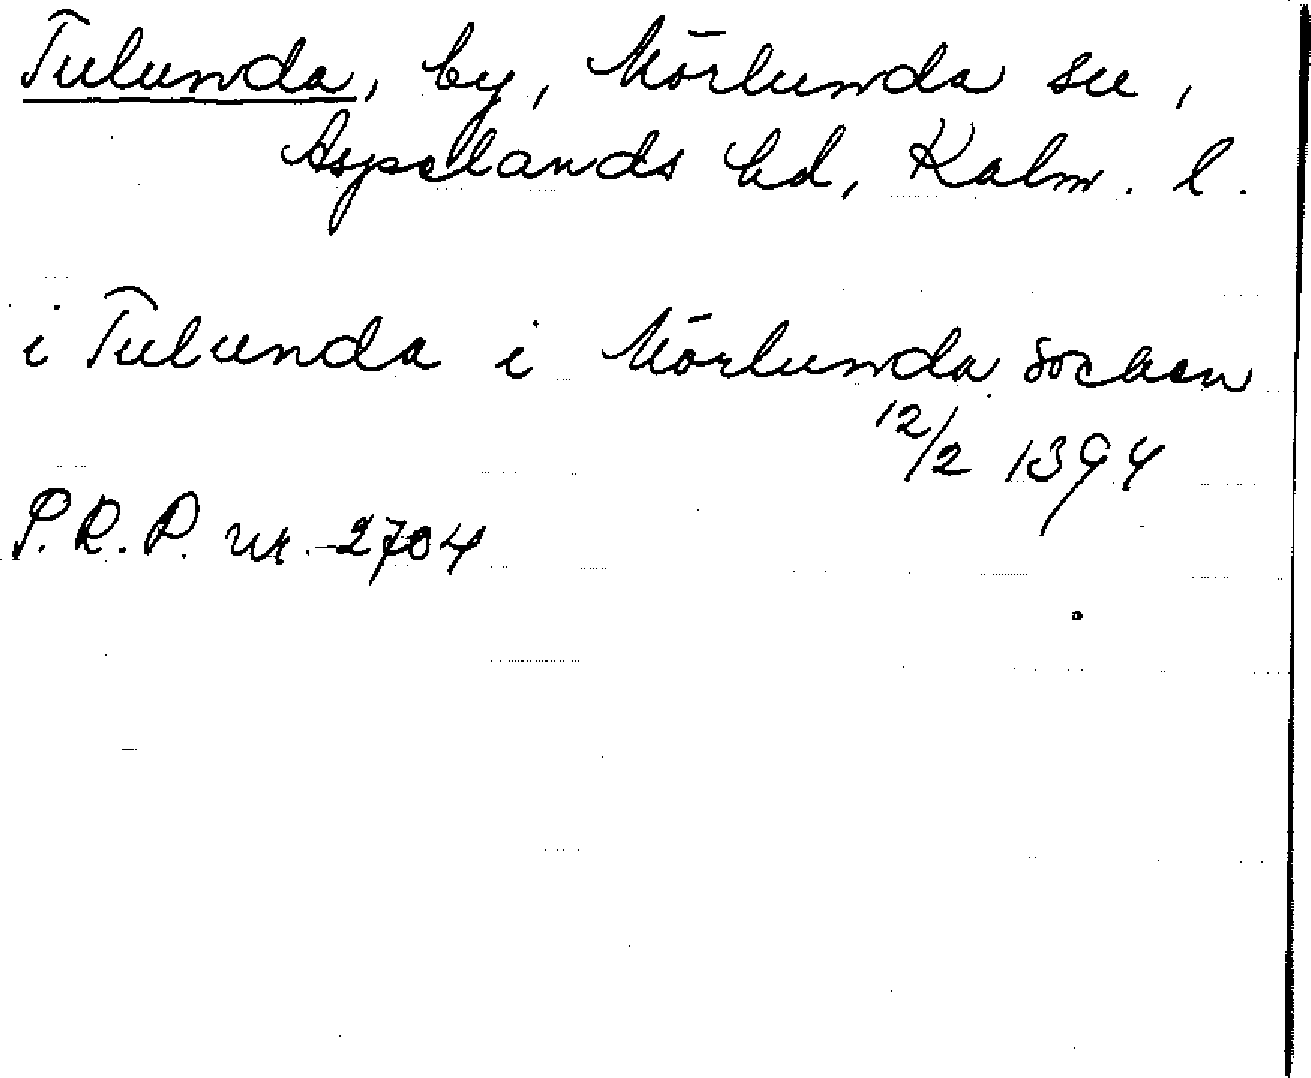 Tulunda, by, Mörlunda sn,
Aspelands hd, Kalm. l.
i Tulunda i Mörlunda socken
12/2 1394
S.R.P. nr. 2704